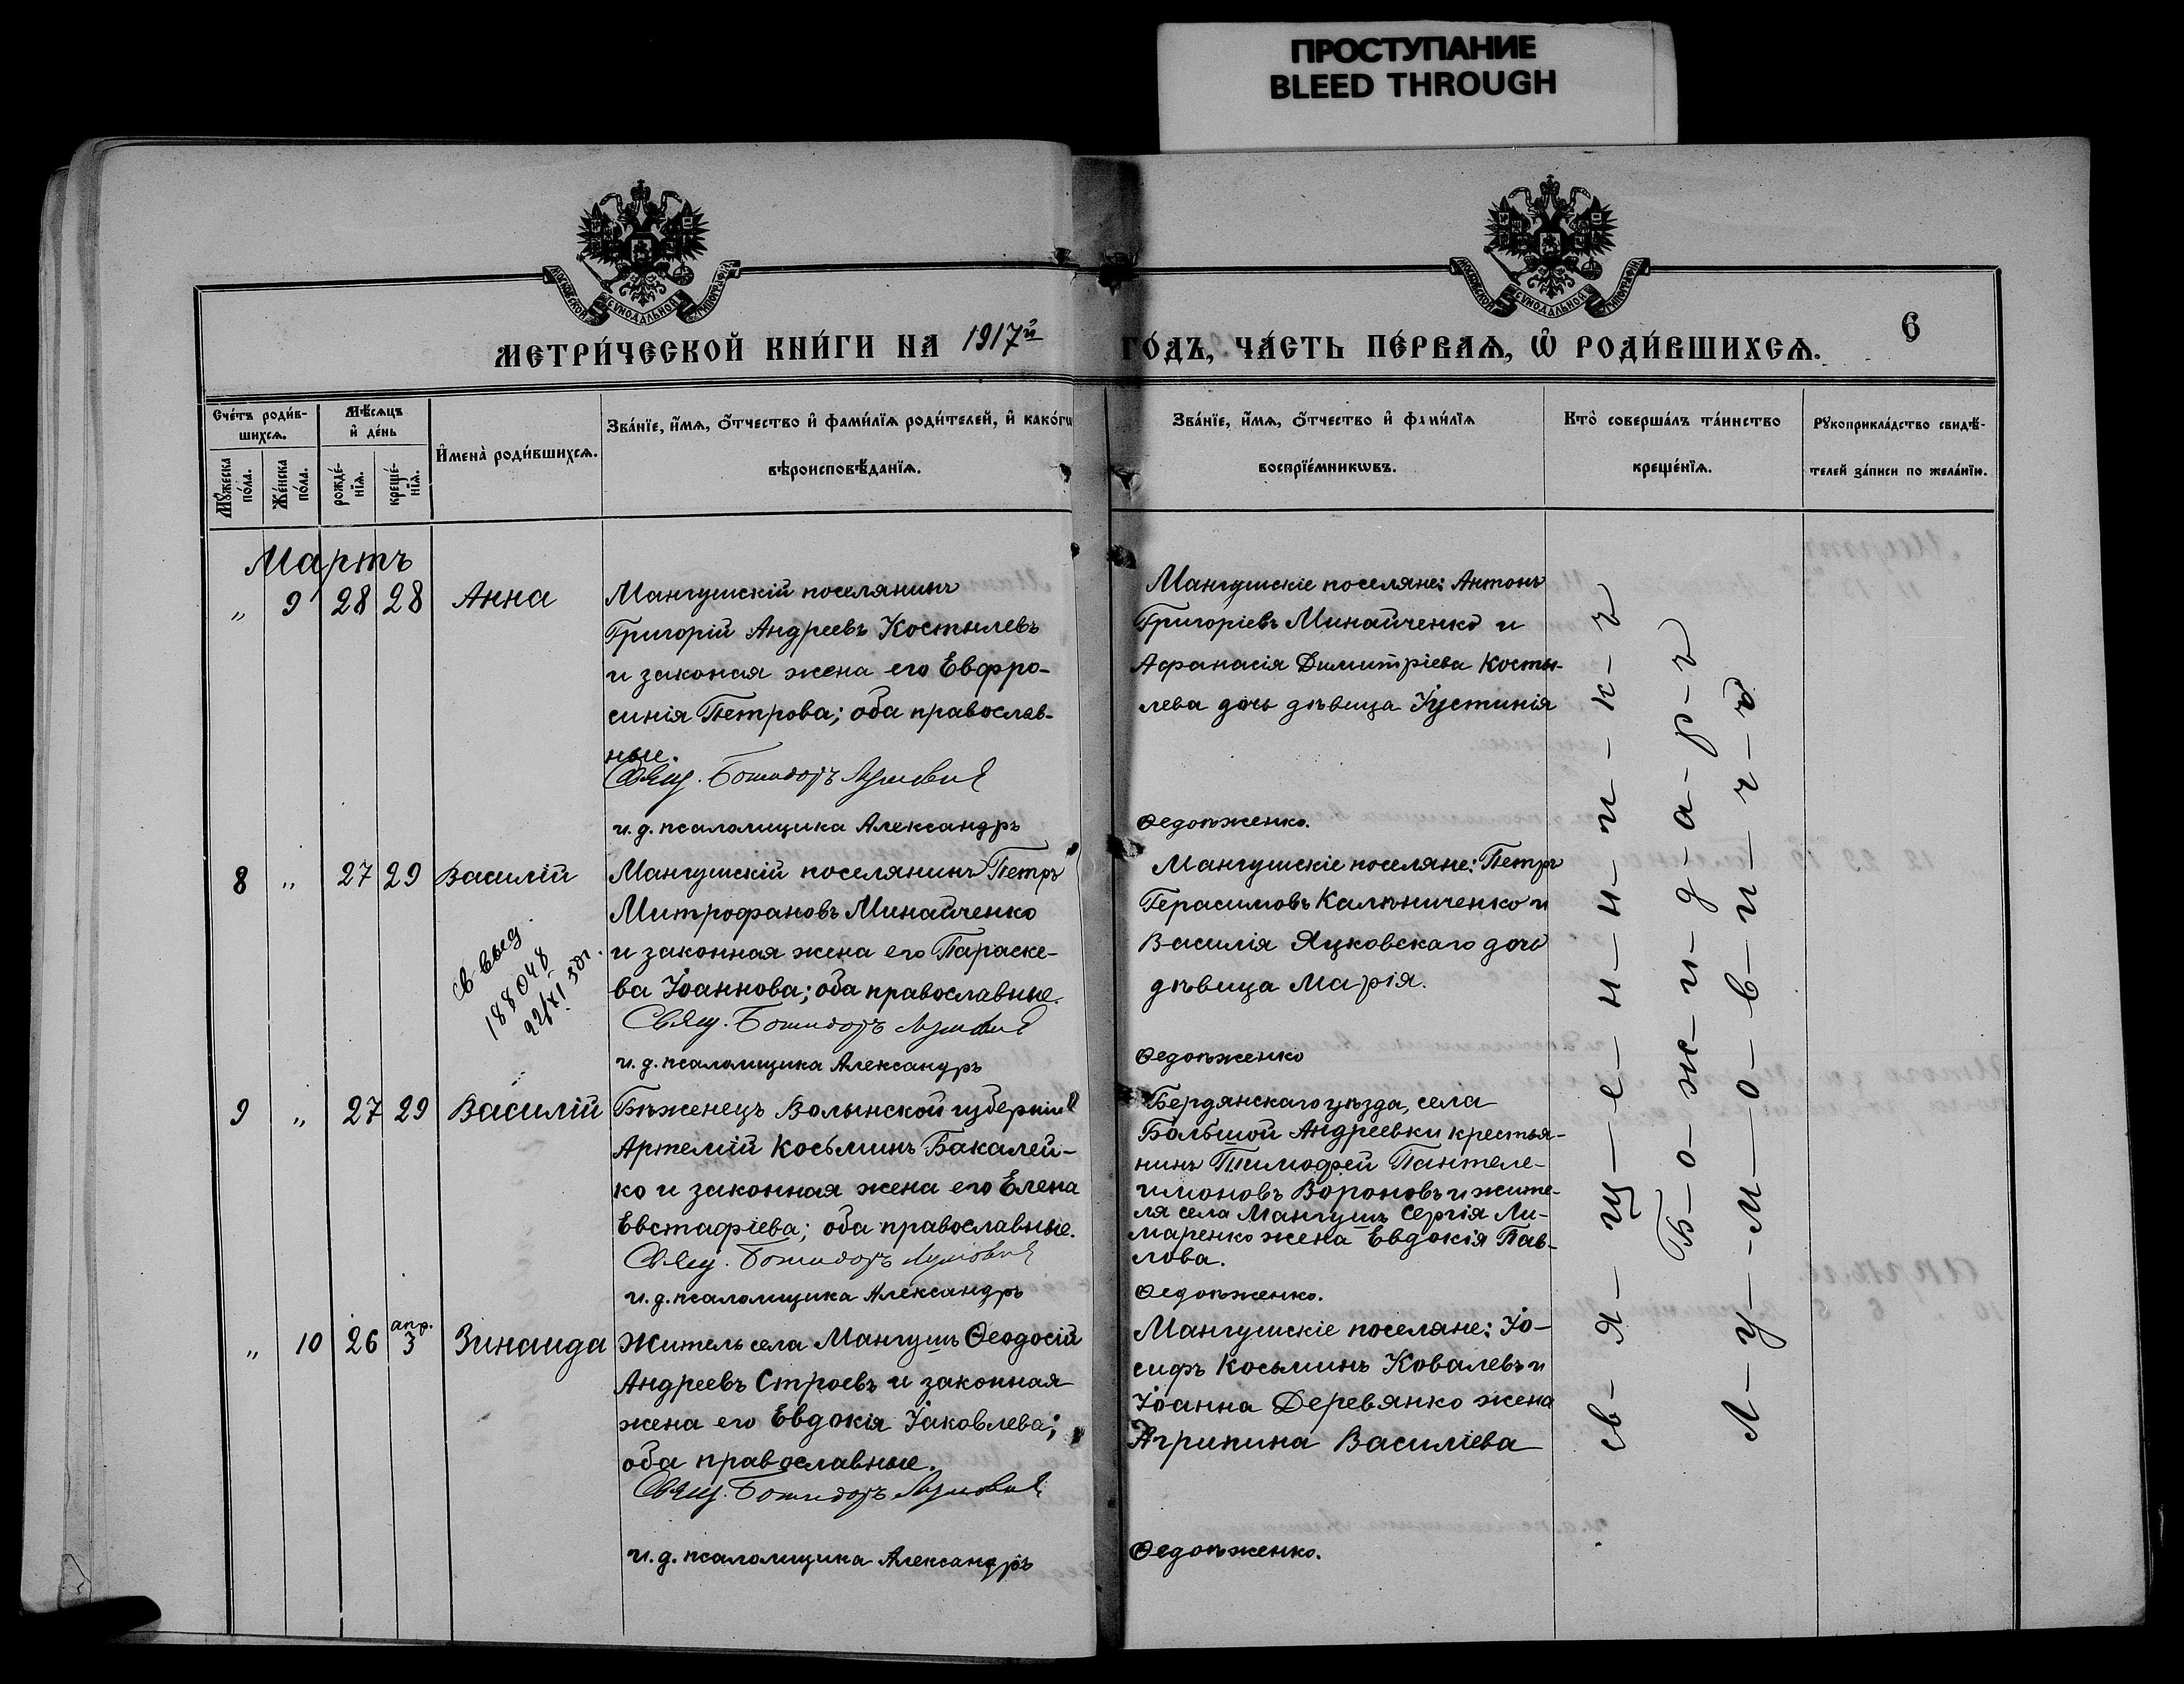 ПРОСТУПАНИЕ
BLEED THROUGH
МОСКОВСКОЙ СѴНОДАЛЬНОЙ ТИПОГРАФІИ
МОСКОВСКОЙ СѴНОДАЛЬНОЙ ТИПОГРАФІИ
МЕТРИ́ЧЕСКОЙ КНИ́ГИ НА 1917й
ГО́ДЪ, ЧА́СТЬ ПЕ́РВАѦ, Ѡ҆ РОДИ́ВШИХСѦ.
6
Сче́тъ роди́в-
шихсѧ.
Мꙋ́жеска по́ла.
Же́нска по́ла.
Мѣ́сѧцъ
и҆ де́нь
рожде́-
нїѧ.
креще́-
нїѧ.
И҆мена̀ роди́вшихсѧ.
Зва́нїе, и҆́мѧ, ѻ҆́тчество и҆ фами́лїѧ роди́телей, и҆ како́гѡ
вѣроисповѣ́данїѧ.
Зва́нїе, и҆́мѧ, ѻ҆́тчество и҆ фами́лїѧ
воспрїе́мникѡвъ.
Кто̀ соверша́лъ та́инство
креще́нїѧ.
Рꙋкоприкла́дство свидѣ́-
телей за́писи по жела́нїю.
Мартъ
" 9 28 28 Анна
Мангушскій поселянинъ
Григорій Андреевъ Костылевъ
и законая жена его Евфро-
синія Петрова; оба православ-
ные.
Свящ. Божидаръ Лумовичъ
и. д. псаломщика Александръ
Мангушскіе поселяне: Антонъ
Григоріевъ Минайченко и
Афанасія Димитріева Косты-
лева дочь дѣвица Іустинія
Ѳедоѣженко.
8 " 27 29 Василій
св выд
188048
22/XI 50г.
Мангушскій поселянинъ Петръ
Митрофановъ Минайченко
и законная жена его Параске-
ва Іоаннова; оба православные.
Свящ. Божидаръ Лумовичъ
и. д. псаломщика Александръ
Мангушскіе поселяне: Петръ
Герасимовъ Калѣниченко и
Василія Яцковскаго дочь
дѣвица Марія.
Ѳедоѣженко
9 " 27 29 Василій
Бѣженецъ Волынской губерніи
Артемій Косьминъ Бакалей-
ко и законная жена его Елена
Евстафіева; оба православные.
Свящ. Божидаръ Лумовичъ
и. д. псаломщика Александръ
Бердянскаго уѣзда, села
Большой Андреевки крестья-
нинъ Тимофей Пантеле-
имоновъ Вороновъ и жите-
ля села Мангушъ Сергія Ли-
маренко жена Евдокія Пав-
лова.
Ѳедоѣженко.
" 10 26 апр. 3 Зинаида
Житель села Мангушъ Ѳеодосій
Андреевъ Строевъ и законная
жена его Евдокія Іаковлева;
оба православные.
Свящ. Божидаръ Лумовичъ
и. д. псаломщика Александръ
Мангушскіе поселяне: Іо-
сифъ Косьминъ Ковалевъ и
Іоанна Деревянко жена
Агрипина Василіева
Ѳедоѣженко.
Св-я-щ-е-н-н-и-к-ъ
Б-о-ж-и-д-а-р-ъ
Л-у-м-о-в-и-ч-ъ